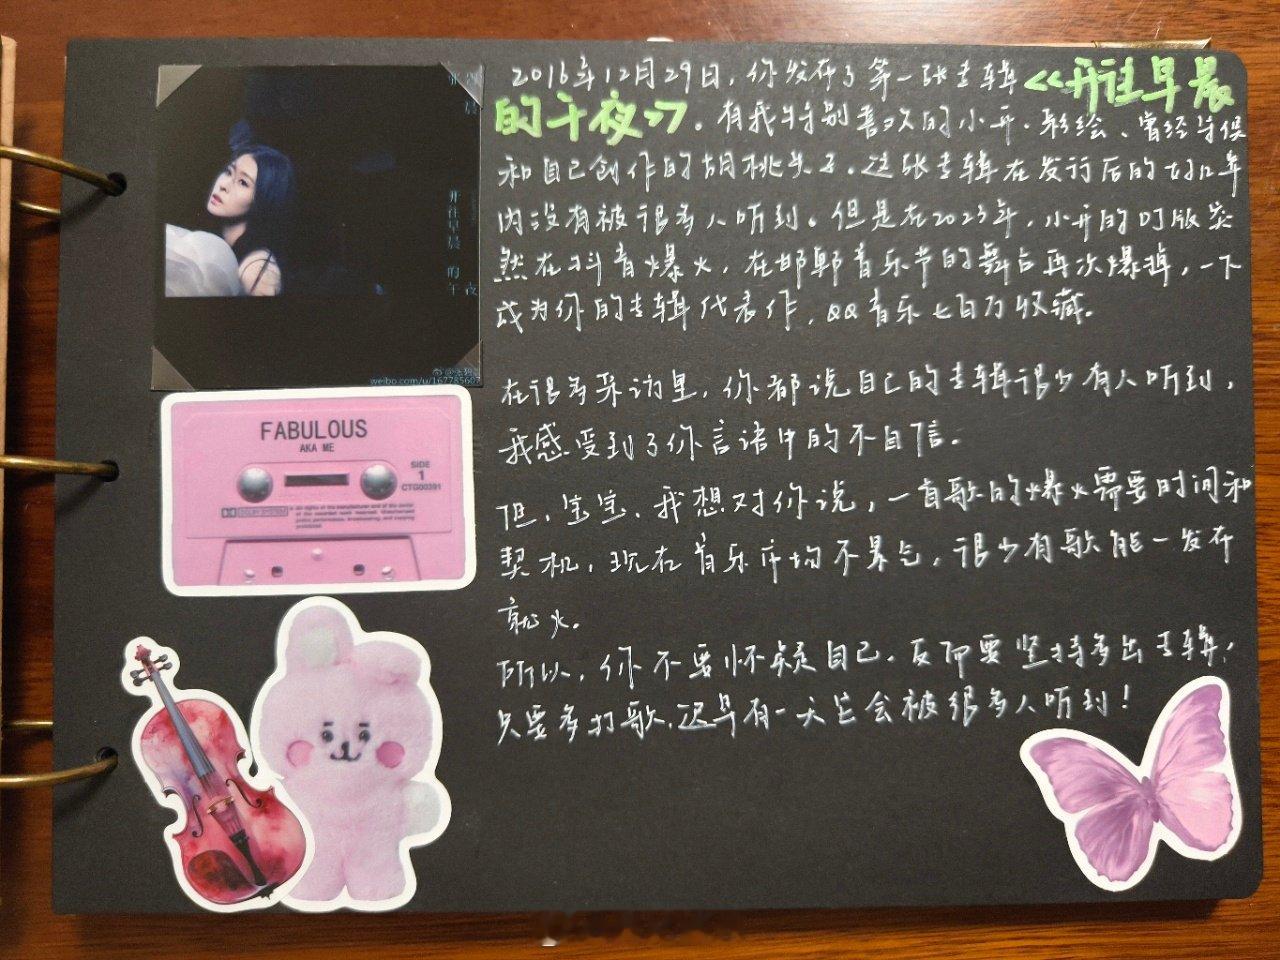 2016年12月29日，你发布了第一张专辑《开往早晨
的午夜》。有我特别喜欢的小开、彩绘、曾经与误
和自己创作的胡桃夹子。这张专辑在发行后的好几年
内没有被很多人听到。但是在2023年，小开的DJ版突
然在抖音爆火，在邯郸音乐节的舞台再次爆掉，一下
成为你的专辑代表作，QQ音乐七百万收藏。
在很多采访里，你都说自己的专辑很少有人听到，
我感受到了你言语中的不自信。
但，宝宝，我想对你说，一首歌的爆火需要时间和
契机，现在音乐市场不景气，很少有歌能一发布
就火。
所以，你不要怀疑自己，反而要坚持多出专辑，
只要多打歌，迟早有一天它会被很多人听到！
开往早晨的午夜
weibo.com/u/167785607
FABULOUS
AKA ME
SIDE
1
CTG00391